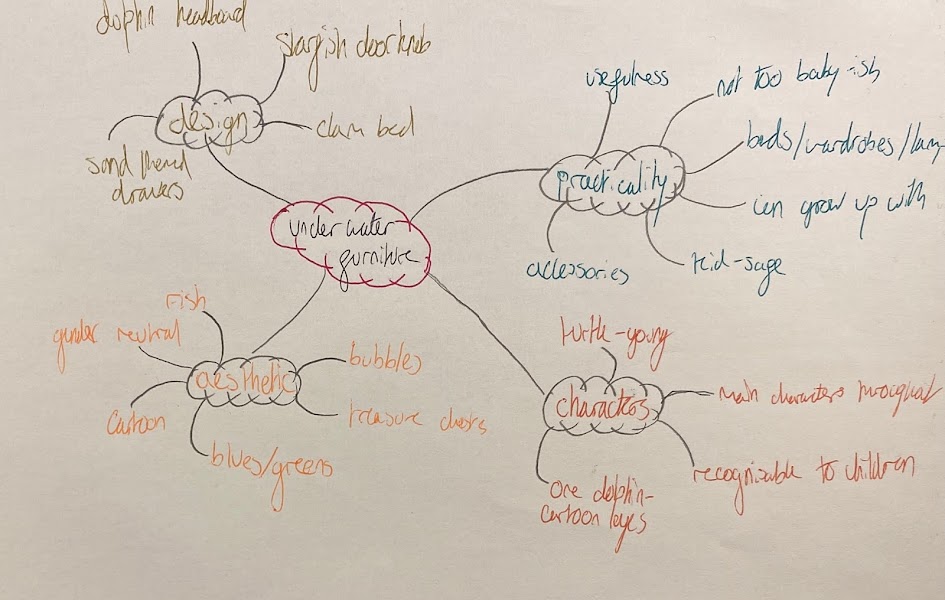 dolphin headboard
starfish doorknob
design
clam bed
sand themed
drawers
under water
furniture
usefulness
not too baby-ish
beds/wardrobes/lam
practicality
can grow up with
accessories
kid-safe
fish
gender neutral
aesthetic
bubbles
cartoon
treasure chests
blues/greens
turtle-young
characters
main characters
recognizable to children
one dolphin-
cartoon eyes